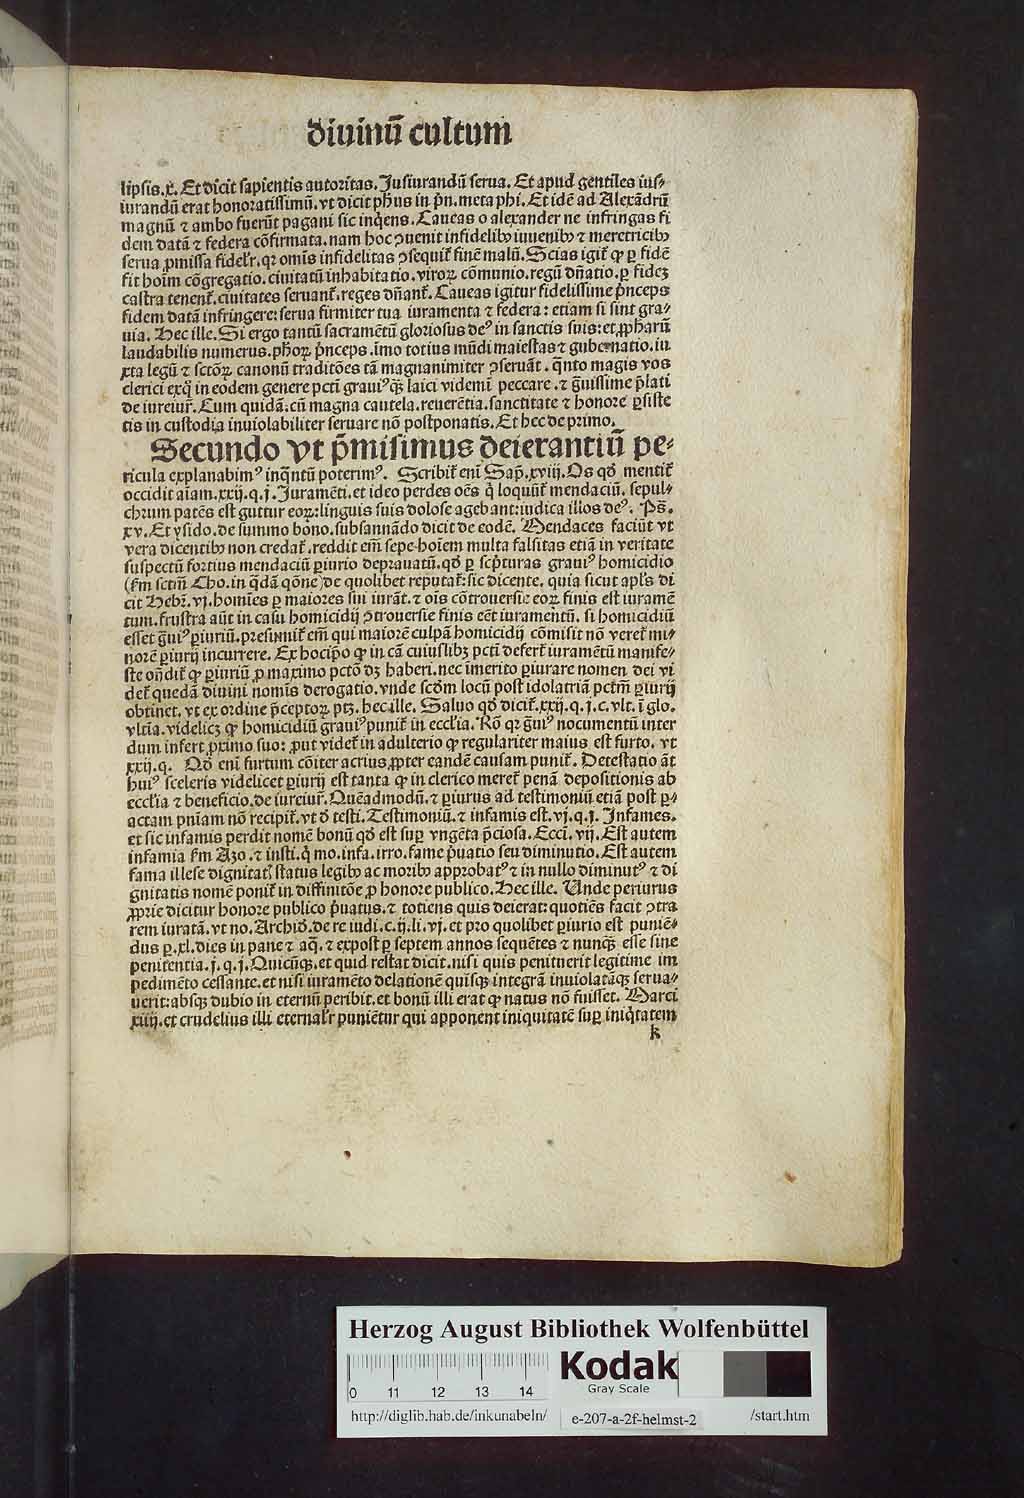 diuinū cultum
lipsis.x̄. Et dicit sapientis autoritas. Jusiurandū serua. Et apud gentiles ius⸗
iurandū erat honoratissimū. vt dicit ph̄us in p̄n. meta phi. Et idē ad Alexādrū
magnū ⁊ ambo fuerūt pagani sic inq̄ens. Caueas o alexander ne infringas fi
dem datā ⁊ federa cōfirmata. nam hoc ꝯuenit infidelibꝰ iuuenibꝰ ⁊ meretricibꝰ
serua ꝓmissa fidelr̄. qꝛ omīs infidelitas ꝯsequit̄ finē malū. Scias igit̄ ꝙ ꝑ fidē
fit hoīm cōgregatio. ciuitatū inhabitatio. viroꝝ cōmunio. regū dn̄atio. ꝑ fideꝫ
castra tenent̄. ciuitates seruant̄. reges dn̄ant̄. Caueas igitur fidelissime p̄nceps
fidem datā infringere: serua firmiter tua iuramenta ⁊ federa: etiam si sint gra⸗
uia. Hec ille. Si ergo tantū sacramētū gloriosus deꝰ in sanctis suis: et ꝓph̄arū
laudabilis numerus. ph̄oꝝ p̄nceps. imo totius mūdi maiestas ⁊ gubernatio. iu
xta legū ⁊ sctōꝝ canonū traditōes tā magnanimiter ꝯseruāt. q̄nto magis vos
clerici exq̄ in eōdem genere pctī grauiꝰ qꝫ laici videmī peccare. ⁊ ḡuissime p̄lati
de iureiur̄. Cum quidā. cū magna cautela. reuerētia. sanctitate ⁊ honore ꝑsiste
tis in custodia inuiolabiliter seruare nō postponatis. Et hec de primo.
Secundo vt p̄misimus deierantiū pe⸗
ricula explanabimꝰ inq̄ntū poterimꝰ. Scribit̄ eni Sap̄. xviij. Os qd̄ mentit̄
occidit aīam. xxij. q. j. Juramēti. et ideo perdes oēs q̄ loquūt̄ mendaciū. sepul⸗
chrum patēs est guttur eoꝝ: linguis suis dolose agebant: iudica illos deꝰ. Ps̄.
xv. Et ysido. de summo bono. subsannādo dicit de eodē. Mendaces faciūt vt
vera dicentibꝰ non credat̄. reddit em̄ sepe hoīem multa falsitas etiā in veritate
suspectū fortius mendaciū ꝑiurio deprauatū. qd̄ ꝑ sc̄pturas grauiꝰ homicidio
(s̄m sctm̄ Tho. in q̄dā qōne) de quolibet reputat̄: sic dicente. quia sicut apl̄s di
cit Hebr̄. vj. homīes ꝑ maiores sui iurāt. ⁊ oīs cōtrouersie eoꝝ finis est iuramē
tum. frustra aūt in casu homicidij ꝯtrouersie finis eēt iuramentū. si homicidiū
esset ḡuiꝰ ꝑiuriū. presumit̄ em̄ qui maiorē culpā homicidij cōmisit nō veret̄ mi⸗
norē ꝑiurij incurrere. Ex hoc ip̄o ꝙ in cā cuiuslibꝫ pctī defert̄ iuramētū manife⸗
ste on̄dit̄ ꝙ ꝑiuriū ꝓ maximo pctō dꝫ haberi. nec imerito ꝑiurare nomen dei vi
det̄ quedā diuini nomīs derogatio. vnde scdm̄ locū post idolatriā pctm̄ ꝑiurij
obtinet. vt ex ordine p̄ceptoꝝ ptꝫ. hec ille. Saluo qd̄ dicit̄. xxij. q. j. c. vlt. ī glo.
vltīa. videlicꝫ ꝙ homicidiū grauiꝰ punit̄ in eccl̄ia. Rō qꝛ ḡuiꝰ nocumentū inter
dum infert ꝓximo suo: ꝓut videt̄ in adulterio ꝙ regulariter maius est furto. vt
xxij. q. Qd̄ eni furtum cōiter acrius ꝓpter eandē causam punit̄. Detestatio aūt
huiꝰ sceleris videlicet ꝑiurij est tanta ꝙ in clerico meret̄ penā depositionis ab
eccl̄ia ⁊ beneficio. de iureiur̄. Quēadmodū. ⁊ ꝑiurus ad testimoniū etiā post ꝑ⸗
actam pn̄iam nō recipit̄. vt d̄ testi. Testimoniū. ⁊ infamis est. vj. q. j. Infames.
et sic infamis perdit nomē bonū qd̄ est suꝑ vngēta p̄ciosa. Ecci. vij. Est autem
infamia s̄m Azo. ⁊ insti. q̄ mo. infa. irro. fame p̄uatio seu diminutio. Est autem
fama illese dignitatꝭ status legibꝰ ac moribꝰ approbatꝰ ⁊ in nullo diminutꝰ ⁊ di
gnitatis nomē ponit̄ in diffinitōe ꝓ honore publico. Hec ille. Unde periurus
ꝓprie dicitur honore publico p̄uatus. ⁊ totiens quis deierat: quotiēs facit ꝯtra
rem iuratā. vt no. Archid̄. de re iudi. c. ij. li. vj. et pro quolibet ꝑiurio est puniē⸗
dus ꝑ. xl. dies in pane ⁊ aq̄. ⁊ ex post ꝑ septem annos sequētes ⁊ nunqꝫ esse sine
penitentia. j. q. j. Quicūqꝫ. et quid restat dicit. nisi quis penituerit legitime im
pedimēto cessante. et nisi iuramēto delationē quisqꝫ integrā inuiolatāqꝫ serua⸗
uerit: absqꝫ dubio in eternū peribit. et bonū illi erat ꝙ natus nō fuisset. Marci
xiiij. et crudelius illi eternalr̄ puniētur qui apponent iniquitatē suꝑ iniq̄tatem
k
Herzog August Bibliothek Wolfenbüttel
0 11 12 13 14
Kodak
Gray Scale
http://diglib.hab.de/inkunabeln/ e-207-a-2f-helmst-2 /start.htm